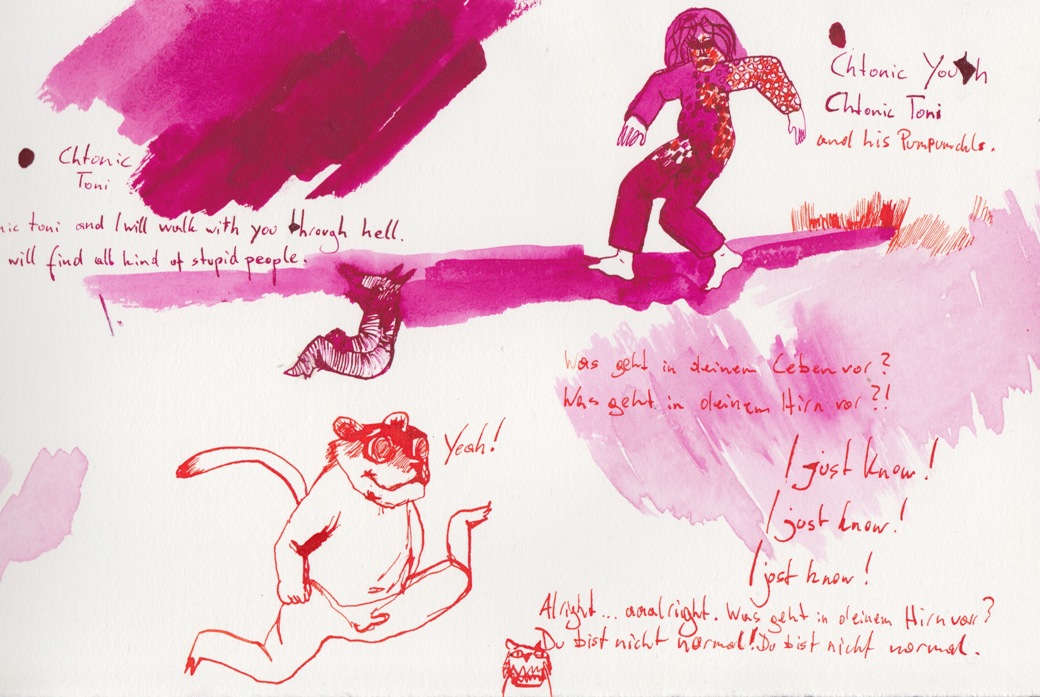 Chtonic Youth
Chtonic Toni
and his Pumpumchls.
Chtonic
Toni
nic toni and I will walk with you through hell.
will find all kind of stupid people.
Was geht in deinem Leben vor?
Was geht in deinem Hirn vor?!
Yeah!
I just know!
I just know!
I just know!
Alright... aaalright. Was geht in deinem Hirn vor?
Du bist nicht normal! Du bist nicht normal.